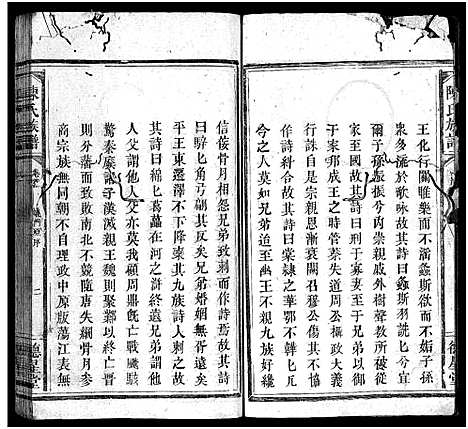 陳氏族譜
王化行關雎樂而不淫螽斯歌而不妬子孫
衆多派於歌咏故其詩曰螽斯羽詵詵兮宜
爾子孫振振兮內崇親戚外樹賓客自寡妻
家至國故其詩曰刑于寡妻至于兄弟以御
于家邦成王之時管蔡失道周公攝政大義
行誅自是宗親恩漸衰閱召穆公傷
作詩糾合故其詩曰棠隸之華鄂不韡韡凡
今之人莫如兄弟逮至幽王不親九族骨肉
信佞骨月相怨兄弟致剌而作詩焉故其詩
曰騂騂角弓翩其反矣兄弟婚姻無胥遠矣
平王東遷澤不下降棄其九族詩人刺之故
其詩曰綿綿葛藟在河之滸終遠兄弟謂他
人父謂他人父亦莫我顧周鼎既亡戰龍
驚秦廢諸子漢滅親王魏則聚以終亡晉
則分藩而致敗南北不競隨唐失綱骨月參
商宗族無同朝不自理政中原版蕩江表無
陳氏族譜
二
德星堂